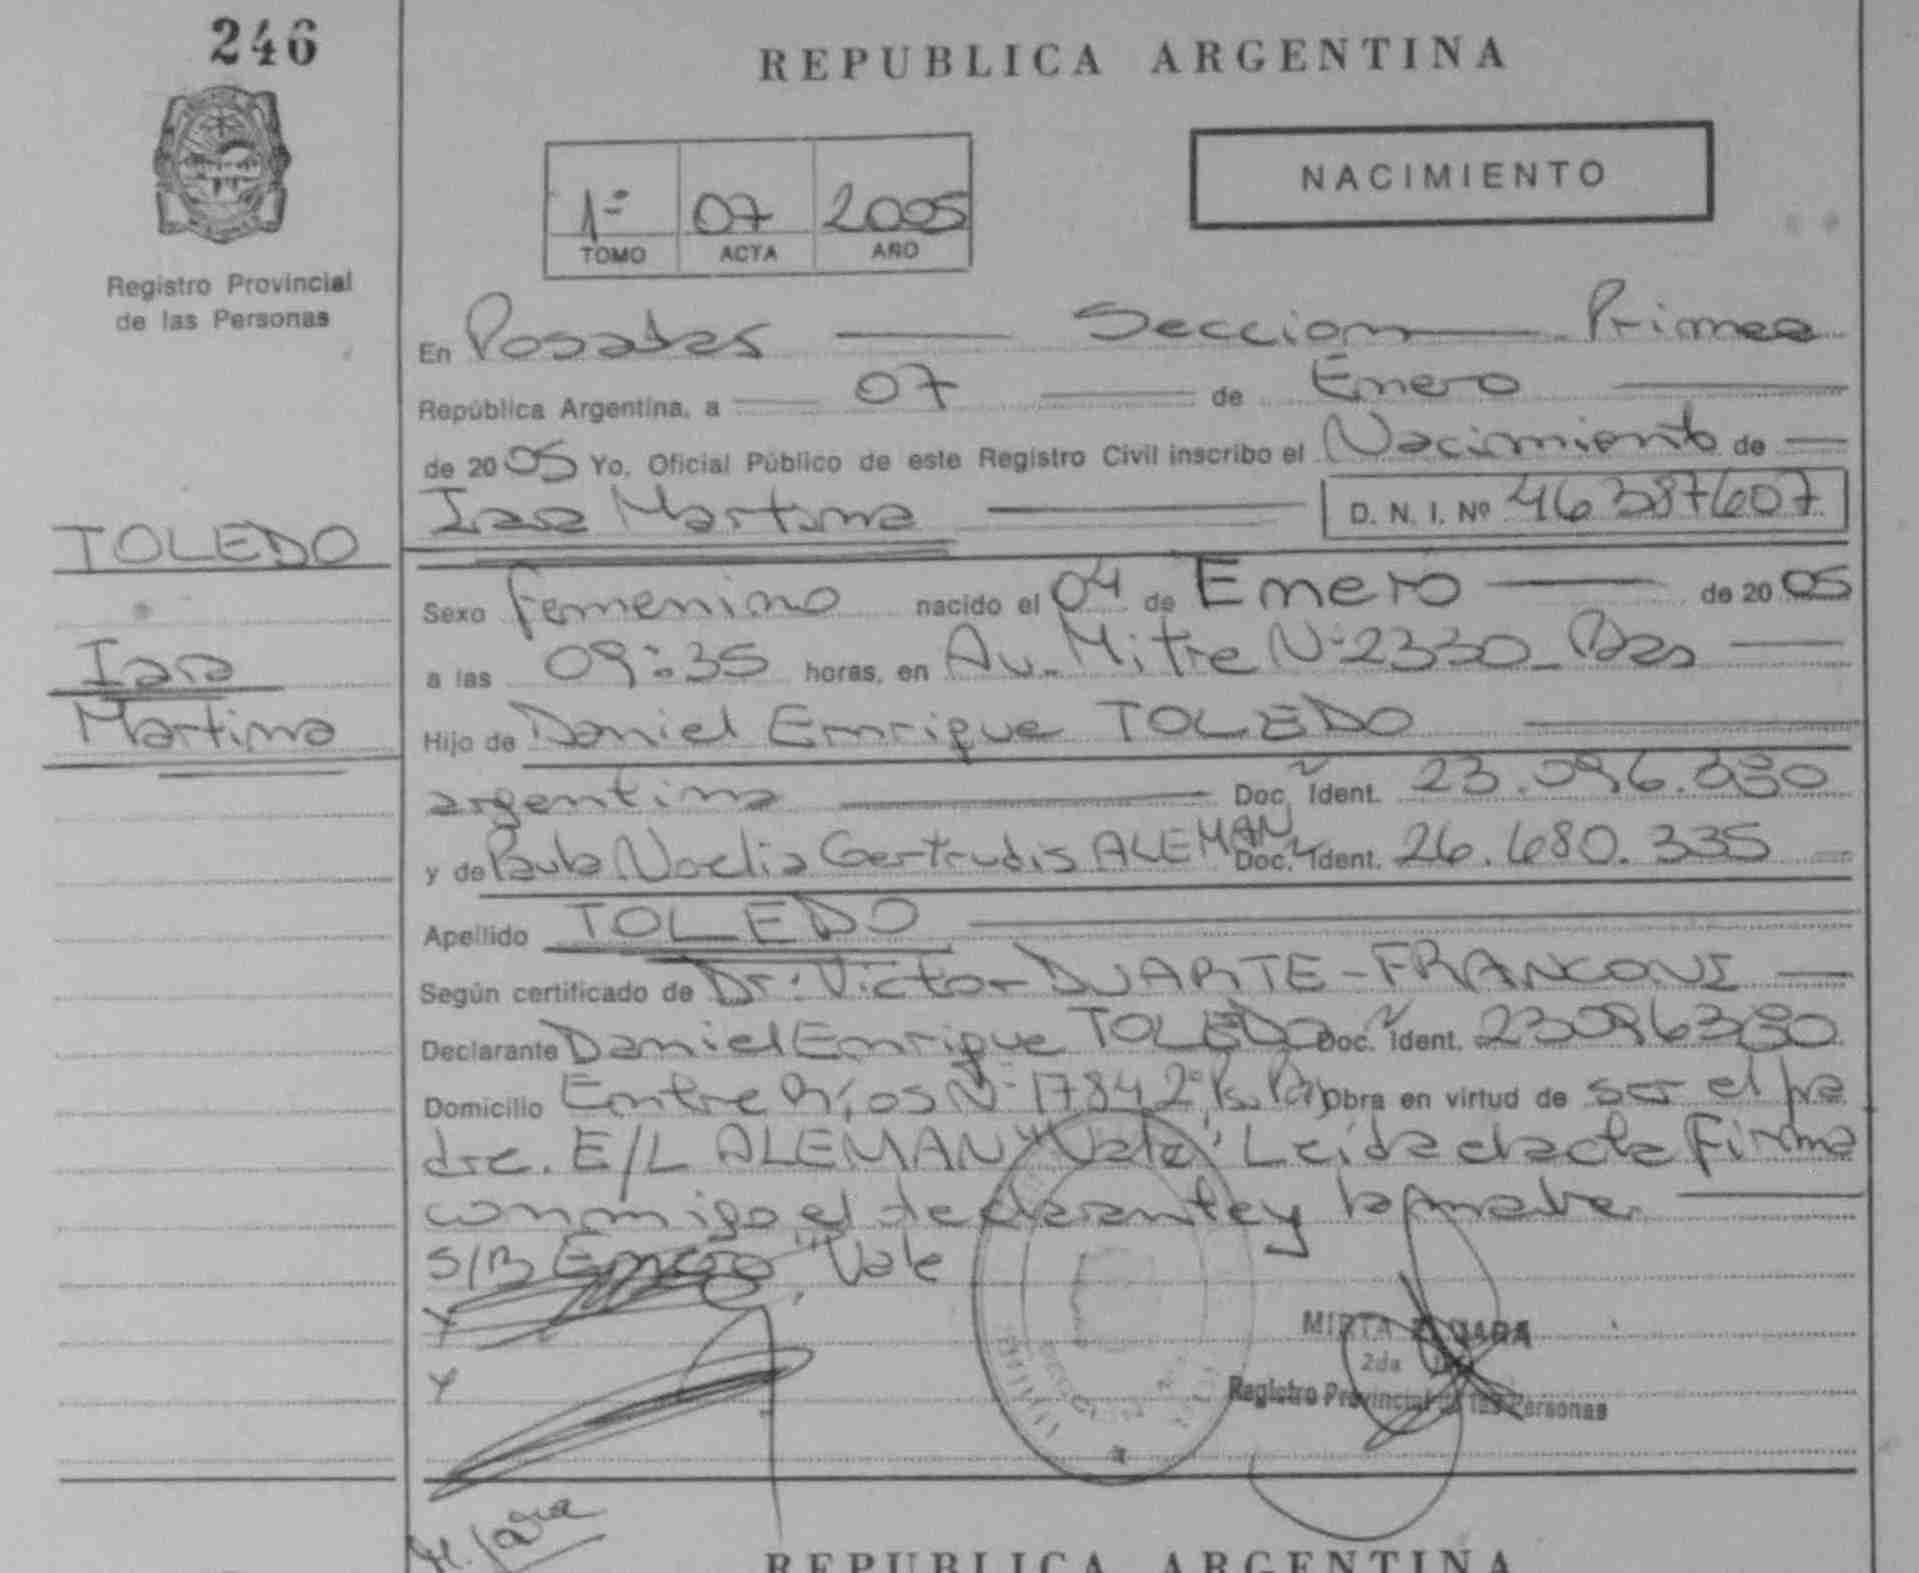 246
REPUBLICA ARGENTINA
NACIMIENTO
1º 07 2005
TOMO ACTA AÑO
Registro Provincial
de las Personas
En Posadas Seccion Primera
República Argentina, a 07 de Enero
de 2005 Yo, Oficial Público de este Registro Civil inscribo el Nacimiento de
Iara Martina D. N. I. Nº 46387607
TOLEDO
Sexo femenino nacido el 04 de Enero de 2005
Iara
a las 09:35 horas, en Av. Mitre Nº 2330_ Pdas
Martina
Hijo de Daniel Enrique TOLEDO
argentina Doc. Ident. 23.096.330
y de Paula Noelia Gertrudis ALEMAN Doc. Ident. 26.680.335
Apellido TOLEDO
Según certificado de Dr. Victor DUARTE-FRANCONI
Declarante Daniel Enrique TOLEDO Doc. Ident. 23096330
Domicilio Entre Ríos Nº 1784 2º Obra en virtud de ser el pa
dre. E/L ALEMAN "Vale" Leída el acta Firma
conmigo el declarante y la madre.
S/B Enero, Vale
MIRTA JARA
2da
Registro Provincial de las Personas
M. Jara
REPUBLICA ARGENTINA